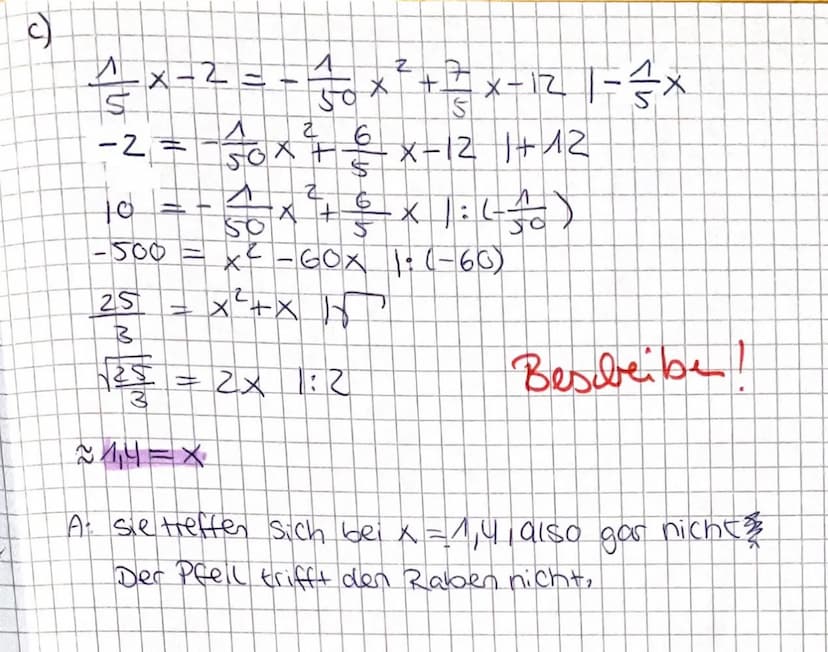 c)
1/5 x - 2 = - 1/50 x² + 7/5 x - 12 | - 1/5 x
-2 = - 1/50 x² + 6/5 x - 12 | + 12
10 = - 1/50 x² + 6/5 x | : (- 1/50)
-500 = x² - 60x | : (-60)
25/3 = x² + x | √
√25/3 = 2x | : 2
Beschreibe!
≈ 1,4 = x
A: sie treffen sich bei x = 1,4, also gar nicht
Der Pfeil trifft den Raben nicht.